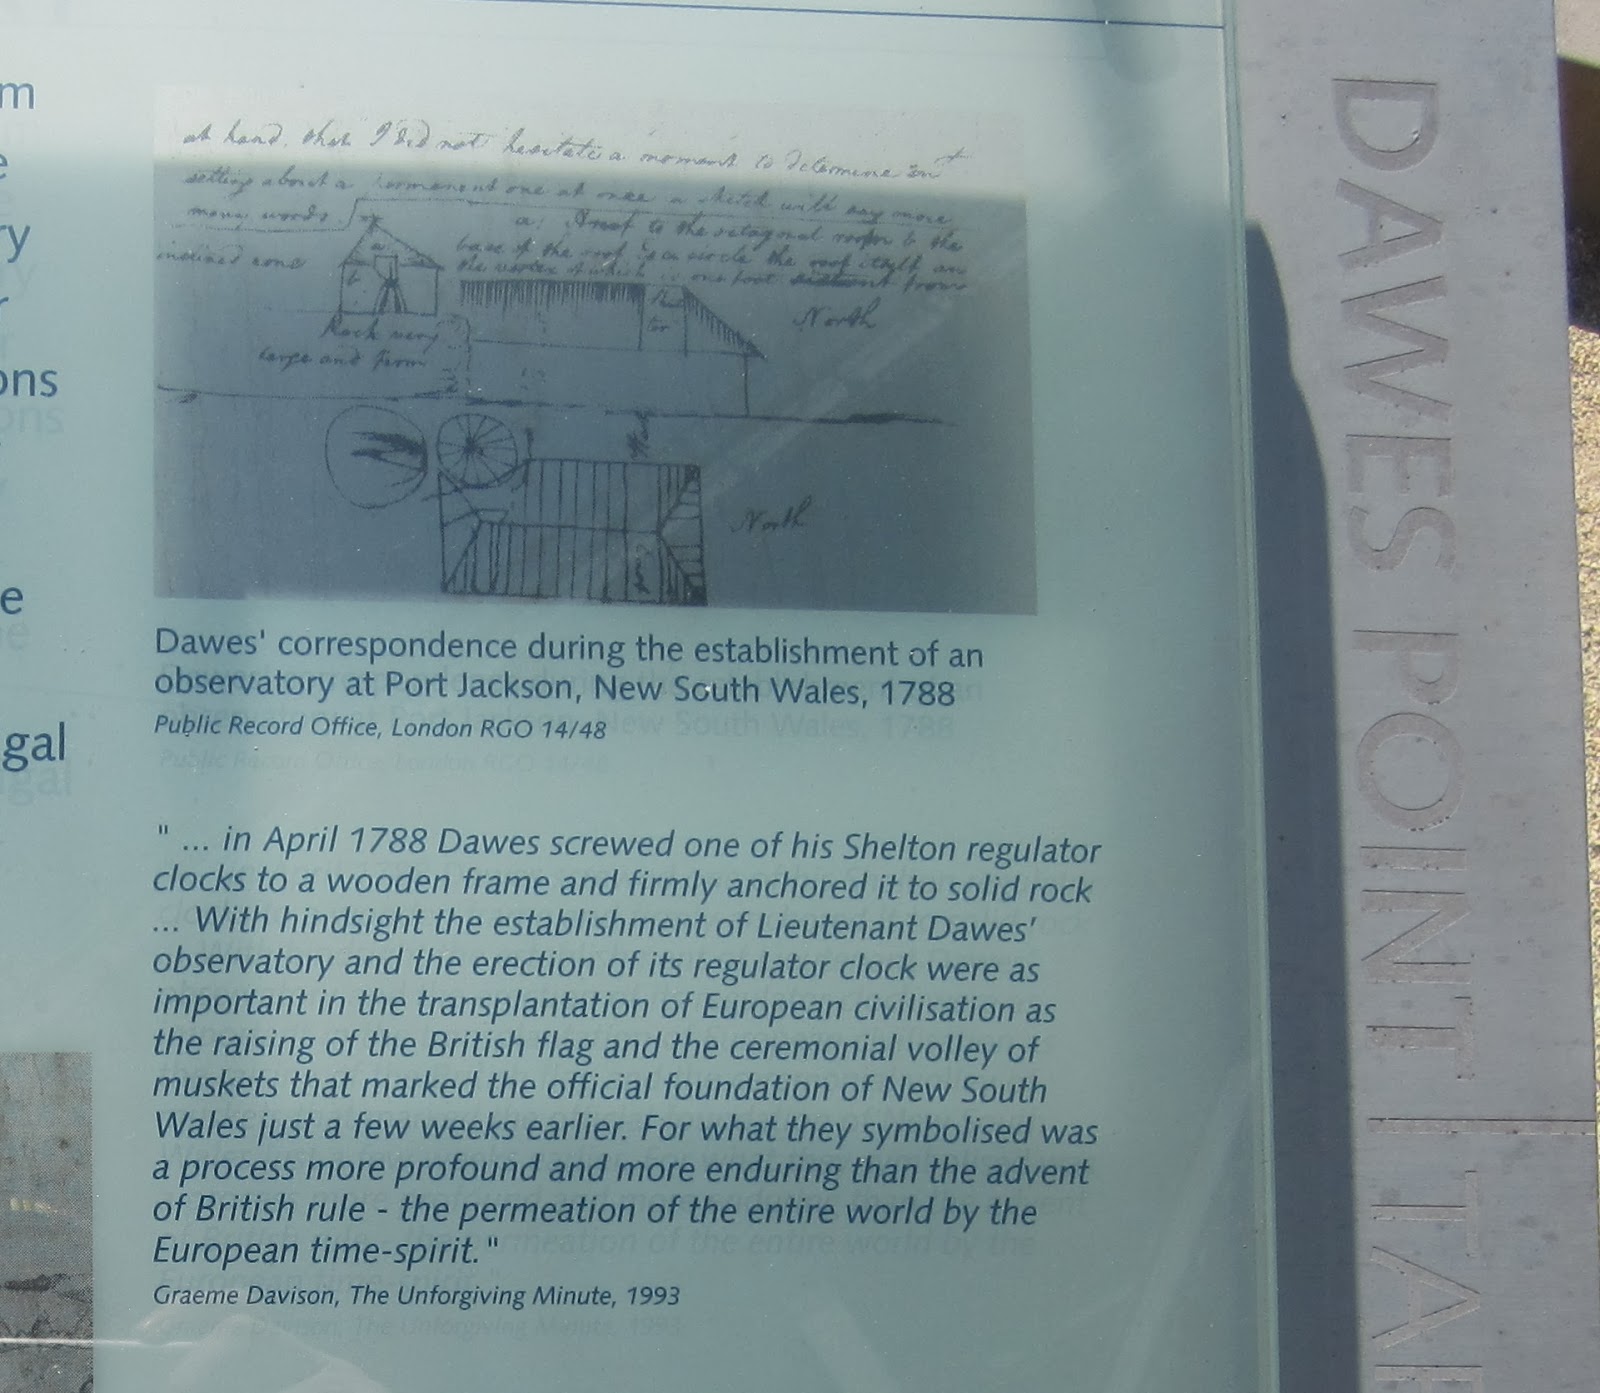 m
e
ry
r
ons
e
gal
at hand, that I did not hesitate a moment to determine on
setting about a permanent one at once a sketch will say more
many words
a: A roof to the octagonal room b the
inclined cone
base of the roof is a circle the roof itself an
the vertex of which is one foot distant from
a
b
North
Rock very
large and firm
North
Dawes' correspondence during the establishment of an
observatory at Port Jackson, New South Wales, 1788
Public Record Office, London RGO 14/48
" ... in April 1788 Dawes screwed one of his Shelton regulator
clocks to a wooden frame and firmly anchored it to solid rock
... With hindsight the establishment of Lieutenant Dawes'
observatory and the erection of its regulator clock were as
important in the transplantation of European civilisation as
the raising of the British flag and the ceremonial volley of
muskets that marked the official foundation of New South
Wales just a few weeks earlier. For what they symbolised was
a process more profound and more enduring than the advent
of British rule - the permeation of the entire world by the
European time-spirit. "
Graeme Davison, The Unforgiving Minute, 1993
DAWES POINT | TAR